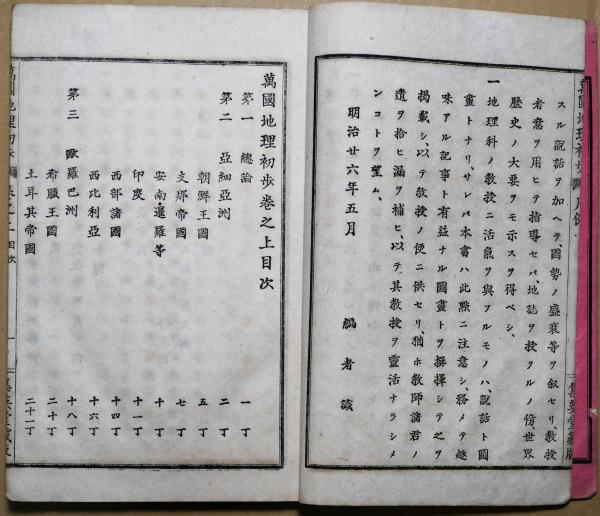 スル說話ヲ加ヘテ、國勢ノ盛衰等ヲ叙セリ、敎授
者意ヲ用ヒテ指導セバ、地誌ヲ授クルノ傍、世界
歷史ノ大要ヲモ示スヲ得ベシ、
一地理科ノ敎授ニ活氣ヲ與フルモノハ、說話ト圖
畫トナリ、サレバ本書ハ此點ニ注意シ、務メテ趣
味アル記事ト有益ナル圖畫トヲ撰擇シテ之ヲ
揭載シ、以テ敎授ノ便ニ供セリ、猶ホ敎師諸君ノ
遺ヲ拾ヒ漏ヲ補ヒ、以テ其敎授ヲ靈活ナラシメ
ンコトヲ望ム、
明治廿六年五月
編者識
萬國地理初步卷之上目次
第一 總論 一丁
第二 亞細亞洲 二丁
朝鮮王國 五丁
支那帝國 七丁
安南·暹羅等 十丁
印度 十一丁
西部諸國 十四丁
西比利亞 十六丁
第三 歐羅巴洲 十八丁
希臘王國 二十丁
土耳其帝國 二十一丁
萬國地理初步
目次
一